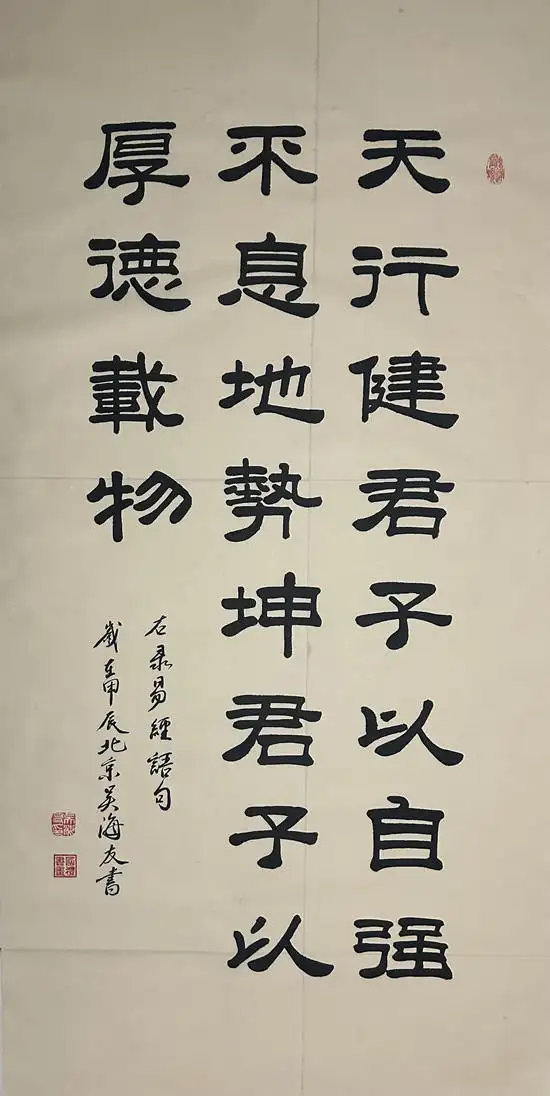 天行健君子以自强
不息地勢坤君子以
厚德載物
右录易經語句
歲在甲辰北京吴海友書